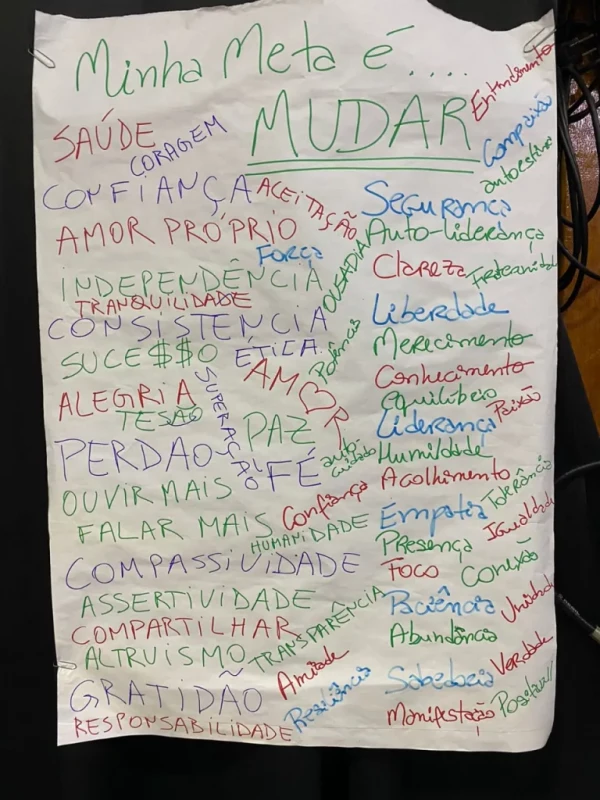 Minha Meta é....
MUDAR
SAÚDE
CORAGEM
CONFIANÇA
ACEITAÇÃO
AMOR PRÓPRIO
FORÇA
INDEPENDÊNCIA
TRANQUILIDADE
OUSADIA
CONSISTÊNCIA
SUCE$$O
ÉTICA
Potência
ALEGRIA
TESÃO
SUPERAÇÃO
AMOR
PAZ
PERDÃO
FÉ
auto-cuidado
OUVIR MAIS
Confiança
FALAR MAIS
HUMANIDADE
COMPASSIVIDADE
ASSERTIVIDADE
COMPARTILHAR
TRANSPARÊNCIA
ALTRUISMO
Amizade
GRATIDÃO
Resiliência
RESPONSABILIDADE
Entendimento
Compaixão
autoestima
Segurança
Auto-liderança
Clareza
Fraternidade
Liberdade
Merecimento
Conhecimento
equilíbrio
Paixão
Liderança
Humildade
Acolhimento
Tolerância
Empatia
Igualdade
Presença
Foco
Conexão
Paciência
Abundância
Verdade
Sabedoria
Manifestação